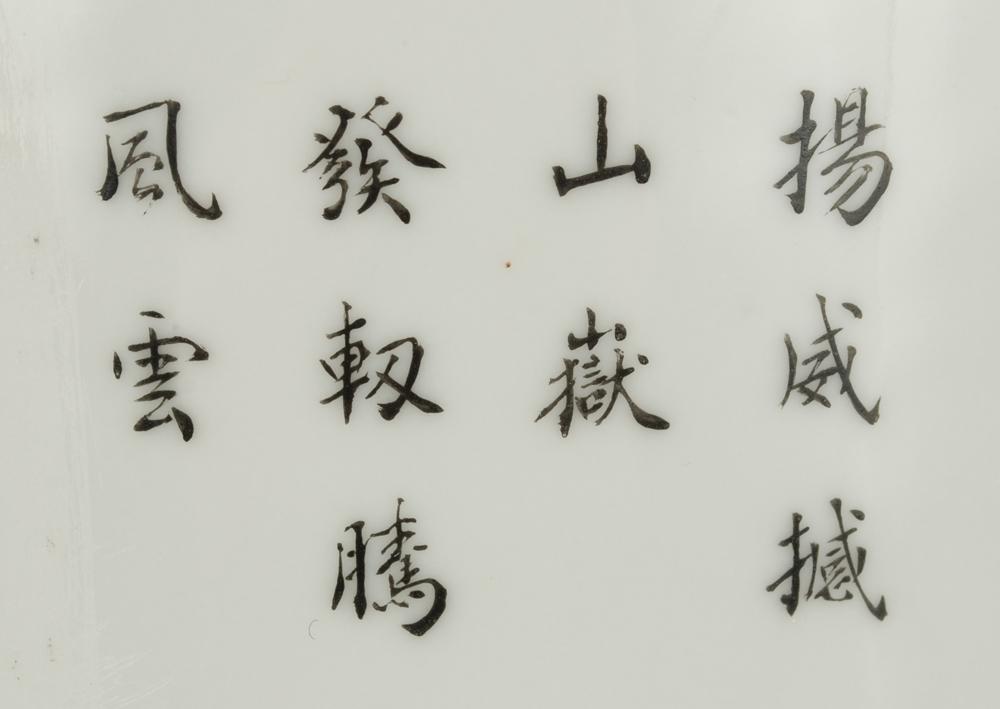 揚威撼
山嶽
發軔騰
風雲